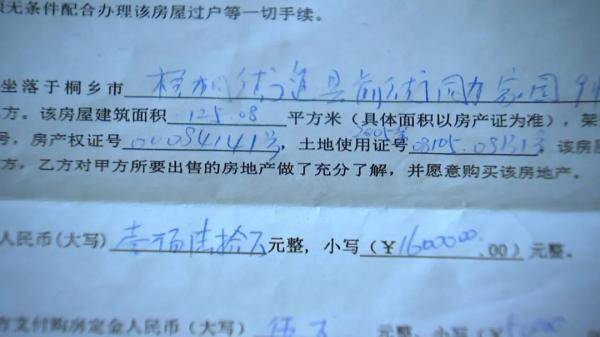 无条件配合办理该房屋过户等一切手续。
坐落于桐乡市 梧桐街道县前街同方家园
方。该房屋建筑面积 125.08 平方米(具体面积以房产证为准),架
号,房产权证号 00094141号,土地使用证号 ,该房屋
方,乙方对甲方所要出售的房地产做了充分了解,并愿意购买该房地产。
人民币(大写) 壹佰陆拾万元整,小写(¥1600000.00)元整。
方支付购房定金人民币(大写) 伍万 元整,小写(¥50000